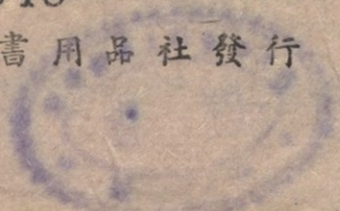 書用品社發行